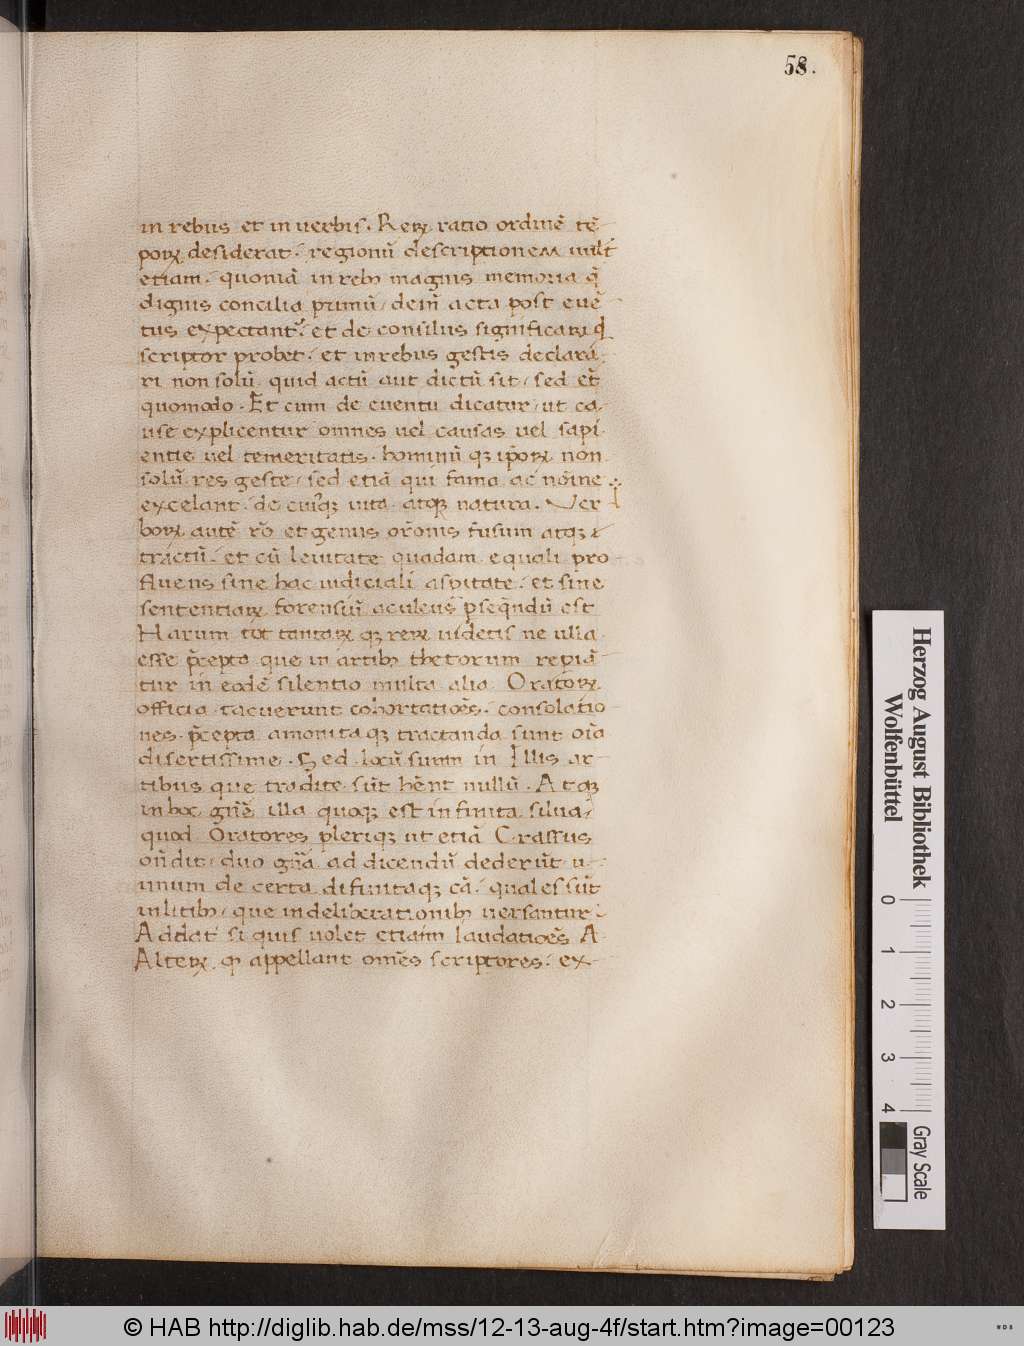 58.
in rebus et in uerbis. Reꝝ ratio ordinē tē-
poꝝ desiderat. regionū descriptionem uult
etiam. quoniā in rebꝰ magnis memoria q̄
dignis concilia primū, dein̄ acta post euē-
tus expectantꝰ. et de consiliis significari qd̄
scriptor probet. et in rebus gestis declara-
ri non solū quid actū aut dictū sit, sed et̄
quomodo. Et cum de euentu dicatur, ut ca-
use explicentur omnes uel causas uel sapi-
entie uel temeritatis. hominū qꝫ ip̄oꝝ non
solū res geste, sed etiā qui fama ac nōine
excelant. de cuiꝰqꝫ uita atqꝫ natura. Ver
boꝝ autē rō et genus orōnis fusum atqꝫ
tractū. et cū leuitate quadam equali pro
fluens sine hac iudiciali asp̄itate. et sine
sententiaꝝ forensiū aculeis p̄seq̄ndū est
Harum tot tantaꝝ qꝫ reꝝ uidetis ne ulla
esse p̄cepta que in artibꝰ rhetorum repiā-
tur in eodē silentio multa alia Oratoꝝ
officia tacuerunt cohortatiōes. consolatio
nes. p̄cepta amonita qꝫ tractanda sunt oīa
disertissime. Sed locū suum in Illis ar-
tibus que tradite sūt hēnt nullū. Atqꝫ
in hoc gnē illa quoqꝫ est infinita silua,
quod Oratores pleriqꝫ ut etiā Crassus
on̄dit, duo gn̄a ad dicendū dederūt u-
unum de certa difinitaqꝫ cā. quales sūt
in litibꝰ, que in deliberationibꝰ uersantur.
Addat si quis uolet etiam laudatiōes A
Alteꝝ qđ appellant om̄es scriptores. ex-
Herzog August Bibliothek
Wolfenbüttel
0 1 2 3 4
Gray Scale
© HAB http://diglib.hab.de/mss/12-13-aug-4f/start.htm?image=00123